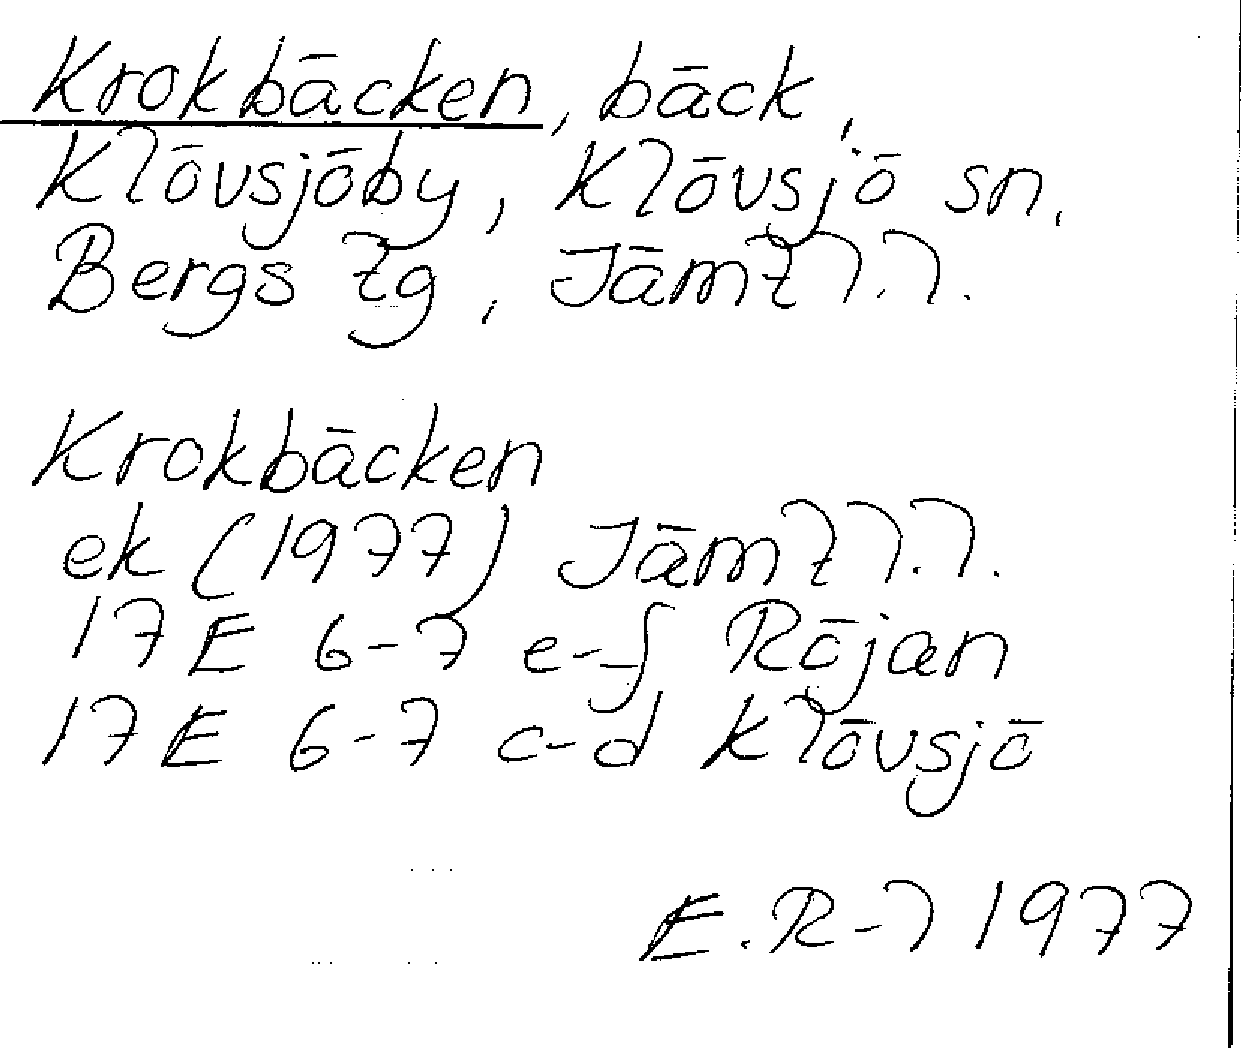 Krokbäcken, bäck,
Klövsjöby, Klövsjö sn,
Bergs tg, Jämtl.l.
Krokbäcken
ek (1977) Jämtl.l.
17E 6-7 e-f Röjan
17E 6-7 c-d Klövsjö
E.R-l 1977